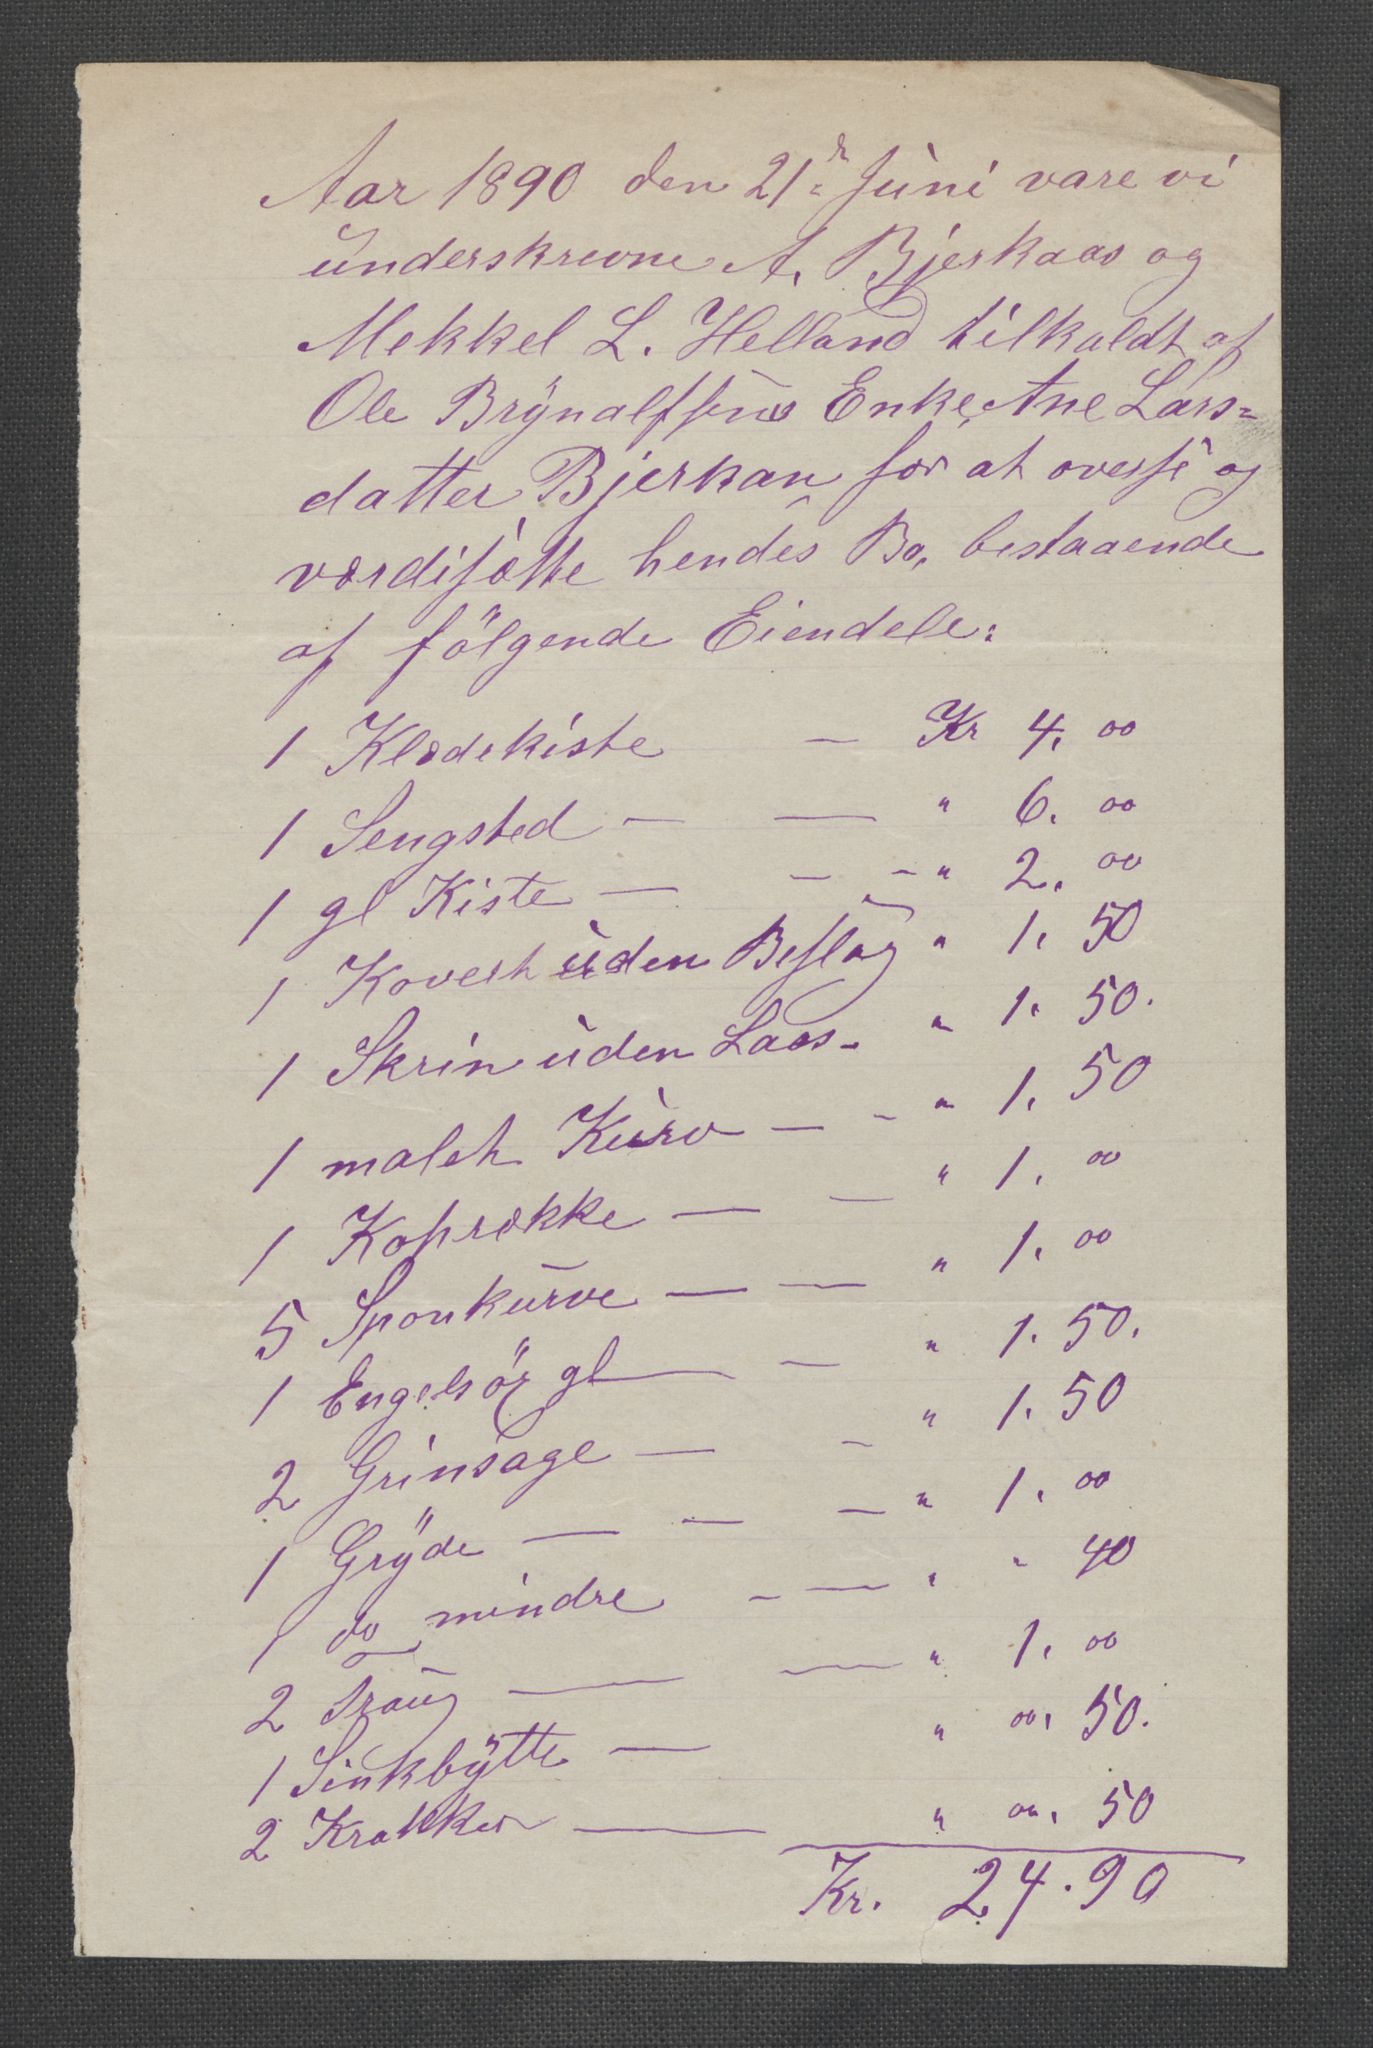 Aar 1890 den 21de Juni vare vi
underskrevne A. Bjerkaas og
Mekkel L. Helland tilkaldt af
Ole Brynalfsens Enke Ane Lars=
datter Bjerkan for at overse og
værdisætte hendes Bo, bestaaende
af følgende Eiendele:
1 Klædekiste — Kr 4. 00
1 Sengsted — — " 6. 00
1 gl Kiste — — - " 2. 00
1 Kovert uden Beslag " 1. 50
1 Skrin uden Laas - " 1. 50.
1 malet Kurv — - " 1. 50
1 Koprække — — " 1. 00
5 Sponkurve — — " 1. 00
1 gl — — " 1. 50.
2 Grinsage — - " 1. 50
1 Gryde — — — " 1. 00
1 do mindre - — " " 40
2 Traug — — " 1. 00
1 Sinkbytte — " 00. 50.
2 Krakker — " 00. 50
Kr. 24.90